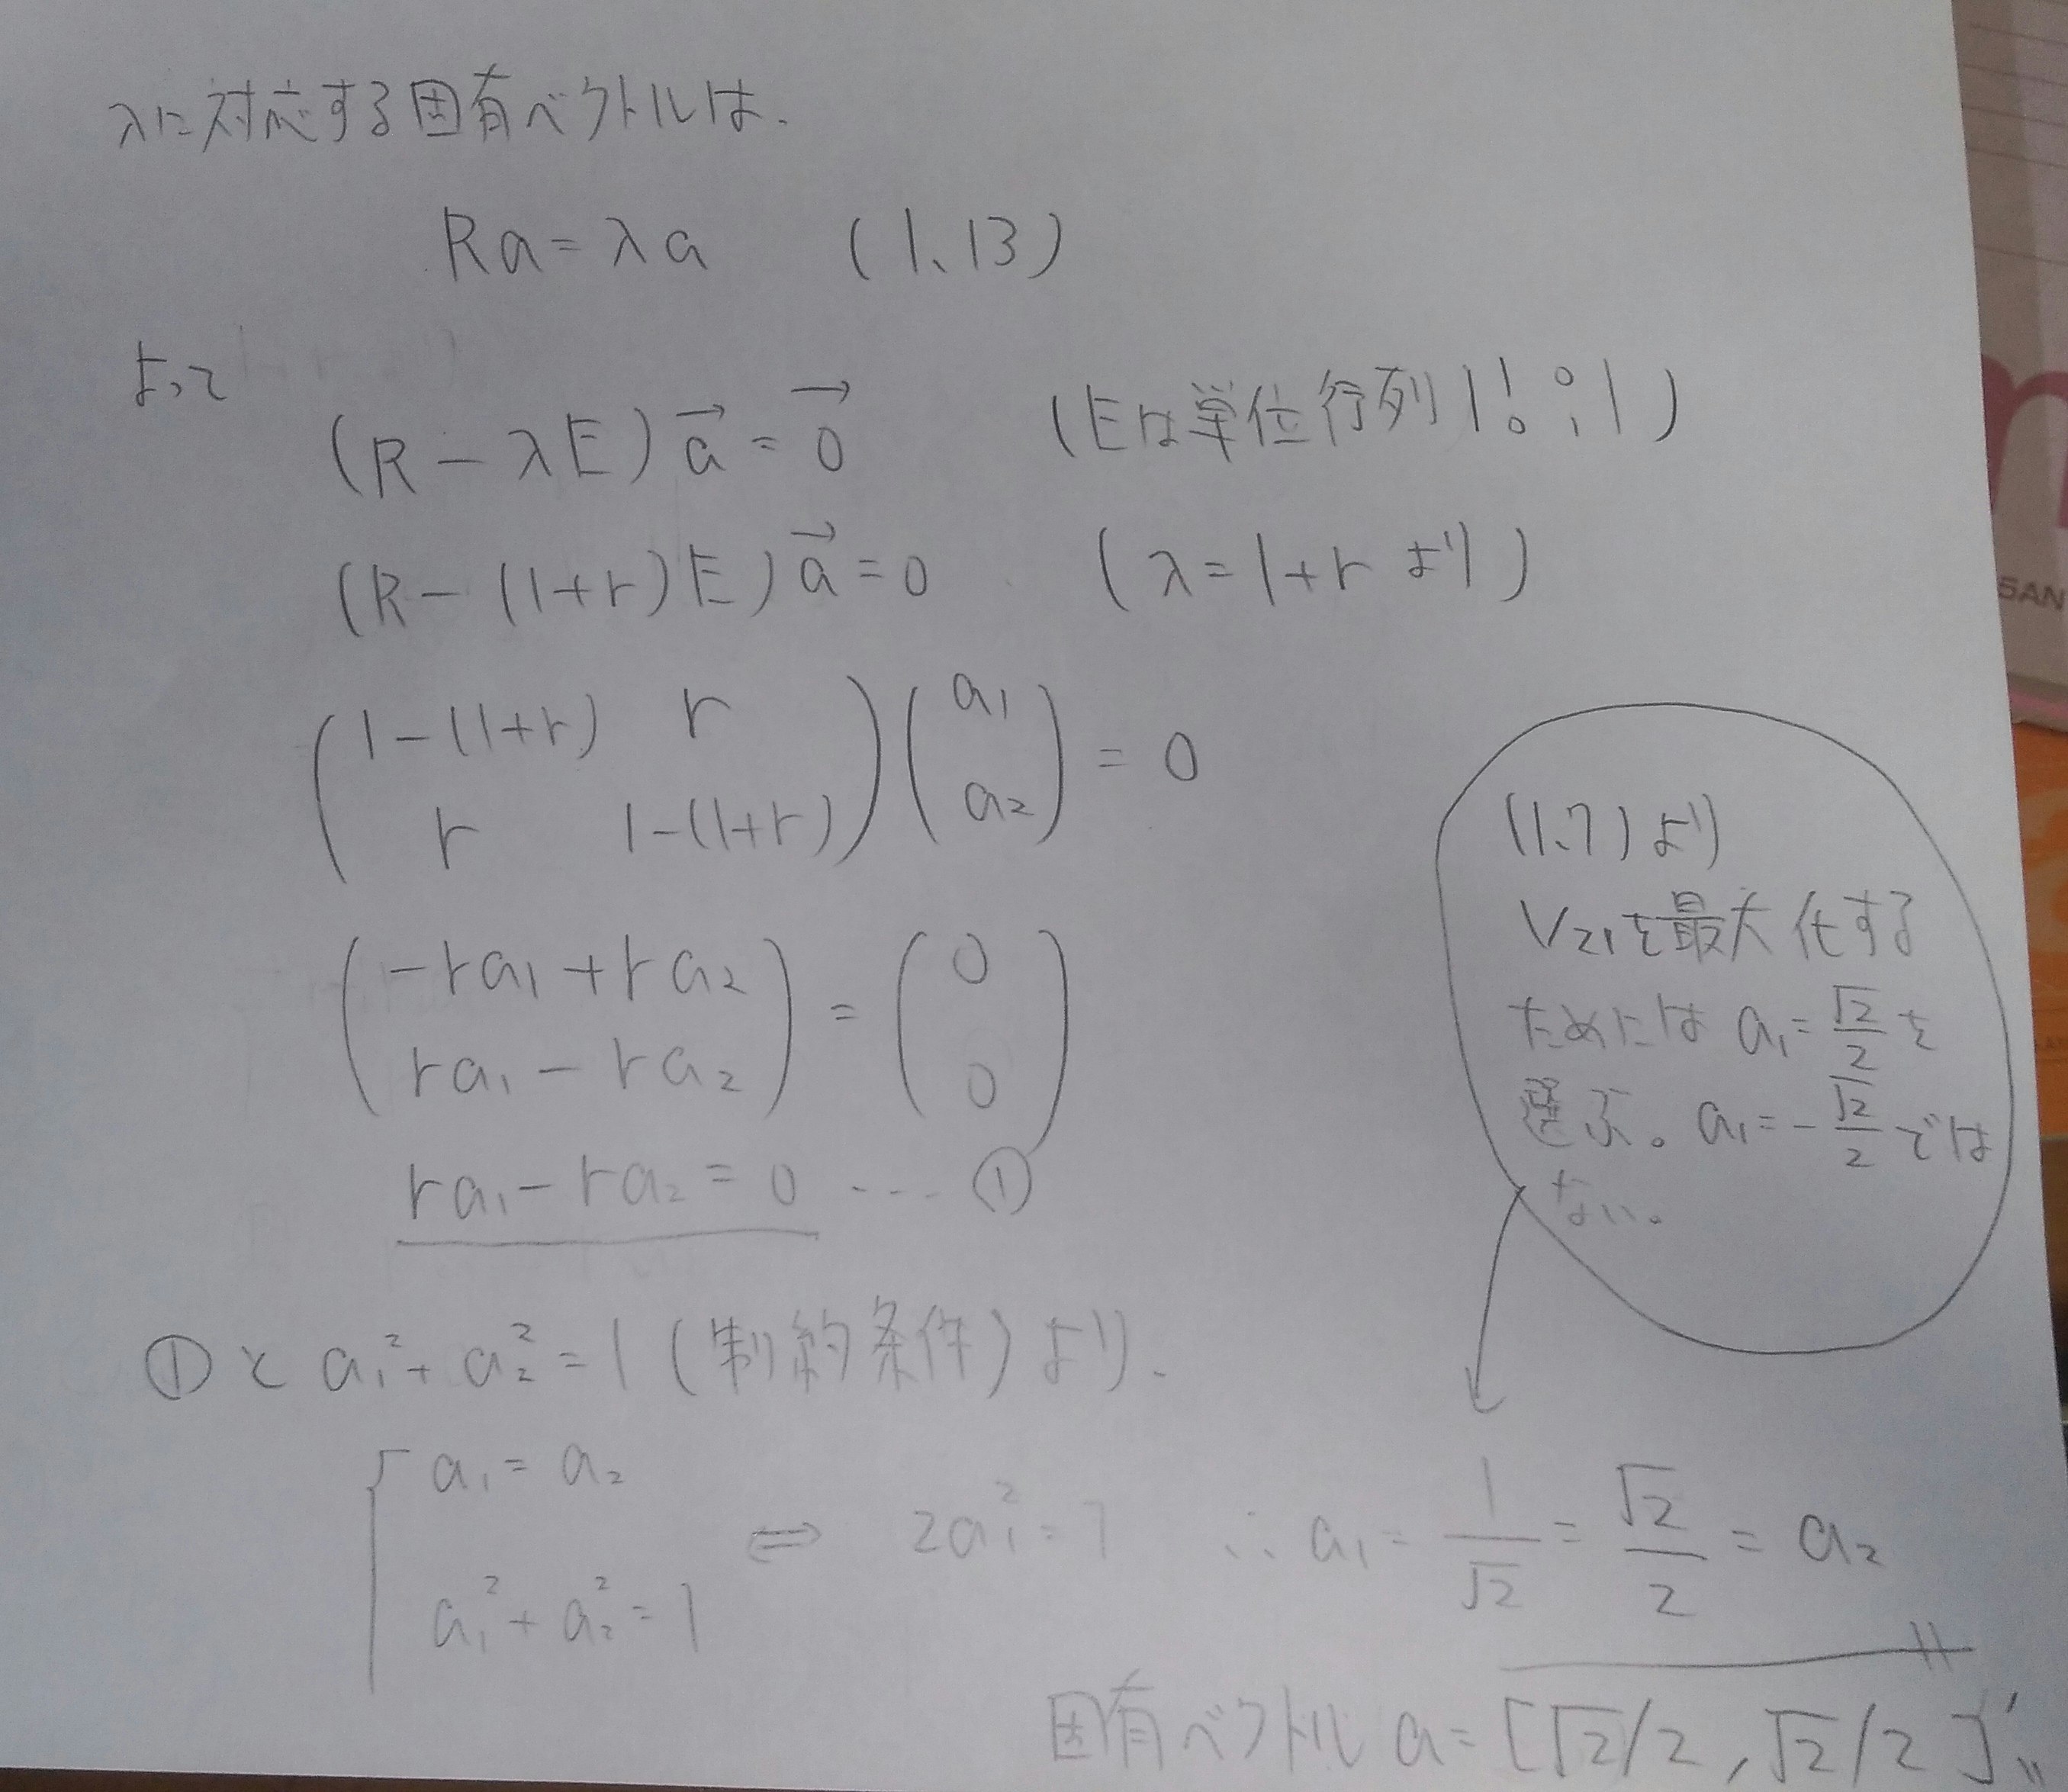 λに対応する固有ベクトルは、
Ra=λa (1、13)
よって
(R-λE)a→=0→ (Eは単位行列|1 0 0 1|)
(R-(1+r)E)a→=0 (λ=1+rより)
(1-(1+r) r
r 1-(1+r))(a₁ a₂)=0
(-ra₁+ra₂
ra₁-ra₂)=(0 0)
ra₁-ra₂=0 … ①
(1、7)より
V₂₁を最大化する
ためには a₁=√2/2を
選ぶ。a₁=-√2/2では
ない。
①と a₁²+a₂²=1(制約条件)より、
{a₁=a₂
a₁²+a₂²=1
⇔ 2a₁²=1 ∴a₁=1/√2=√2/2=a₂
固有ベクトル a=[√2/2,√2/2]'
SAN